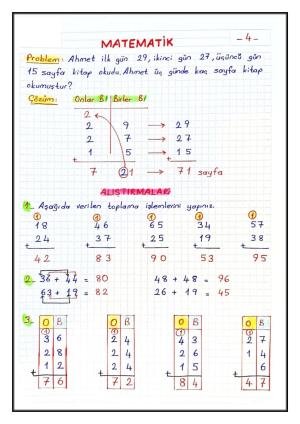 MATEMATİK
- 4 -
Problem: Ahmet ilk gün 29, ikinci gün 27, üçüncü gün
15 sayfa kitap okudu. Ahmet üç günde kaç sayfa kitap
okumuştur?
Çözüm: Onlar B! Birler B!
2
2 9 → 29
2 7 → 27
+ 1 5 → + 15
7 21 → 71 sayfa
ALIŞTIRMALAR
1- Aşağıda verilen toplama işlemlerini yapınız.
1 1 1 1 1
18 46 65 34 57
+ 24 + 37 + 25 + 19 + 38
42 83 90 53 95
2- 36 + 44 = 80 48 + 48 = 96
63 + 19 = 82 26 + 19 = 45
3- O B O B O B O B
1 1 1 1
3 6 2 4 4 3 2 7
2 8 2 4 2 6 1 4
+ 1 2 + 2 4 + 1 5 + 6
7 6 7 2 8 4 4 7